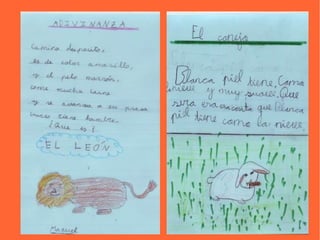 ADIVINANZA
Camina despacito,
es de color amarillo,
y el pelo marrón,
come mucha carne
y se avanza a su presa
cuando tiene hambre.
¿Que es?
EL LEÓN
Manuel
El conejo
Blanca piel tiene, Como
nieve y muy suave, Que
sera esa cosita que blanca
piel tiene como la nieve.